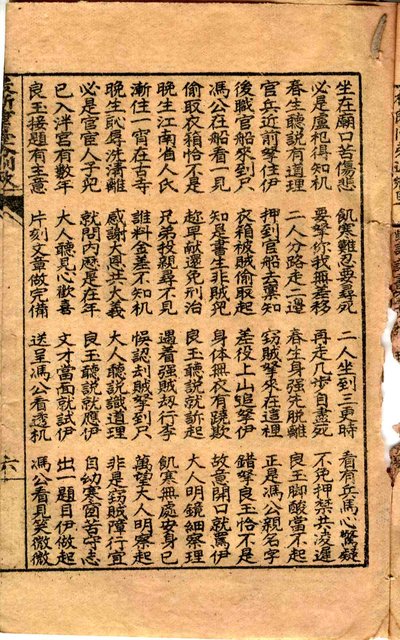 坐在廟口苦傷悲 飢寒難忍要尋死 二人坐到三更時 看有兵馬心驚疑
必是盧杞得知机 要拏你我無差移 再走几步自盡死 不免押禁共凌遲
春生聽說有道理 二人分路走二邊 春生身強先脫離 良玉脚酸當不起
官兵近前拏住伊 押到官船去稟知 窃賊拏來在這裡 正是馮公親名字
後職官船來到尺 衣箱被賊偷取起 差役上山追拏伊 錯拏良玉恰不是
馮公在船看一見 知是書生非賊兜 身体無衣有蹺欺 故意開口就罵伊
偷取衣箱恰不是 趁早献還免刑治 良玉聽說就訴起 大人明鏡細察理
晚生江南省人氏 兄弟投親尋不見 遇着強賊刼行李 飢寒無處安身已
漸住一宵在古寺 誰料金差不知机 悞認刼賊拏到尺 萬望大人明察起
晚生恥辱洗清離 感謝大恩共大義 大人聽說識道理 非是窃賊障行宜
必是官宦人子兜 就問內歷是在年 良玉聽說就應伊 自幼寒窗苦守志
已入泮宮有数年 大人聽見心歡喜 文才當面就試伊 出一題目伊做起
良玉接題有主意 片刻文章做完備 送呈馮公看透机 馮公看見笑微微
六